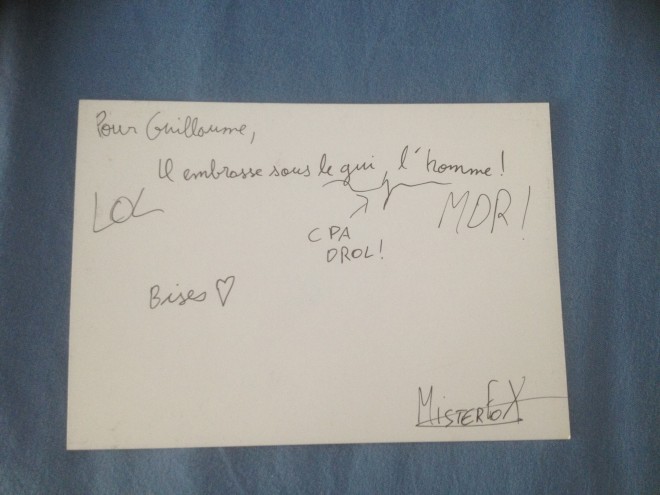 Pour Guillaume,
Il embrasse sous le gui, l'homme!
LOL
MDR!
CPA
DROL!
Bises ♡
MISTERFOX